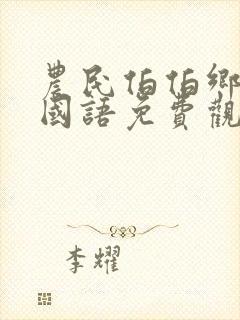 農民伯伯鄉
國語免費觀
李耀